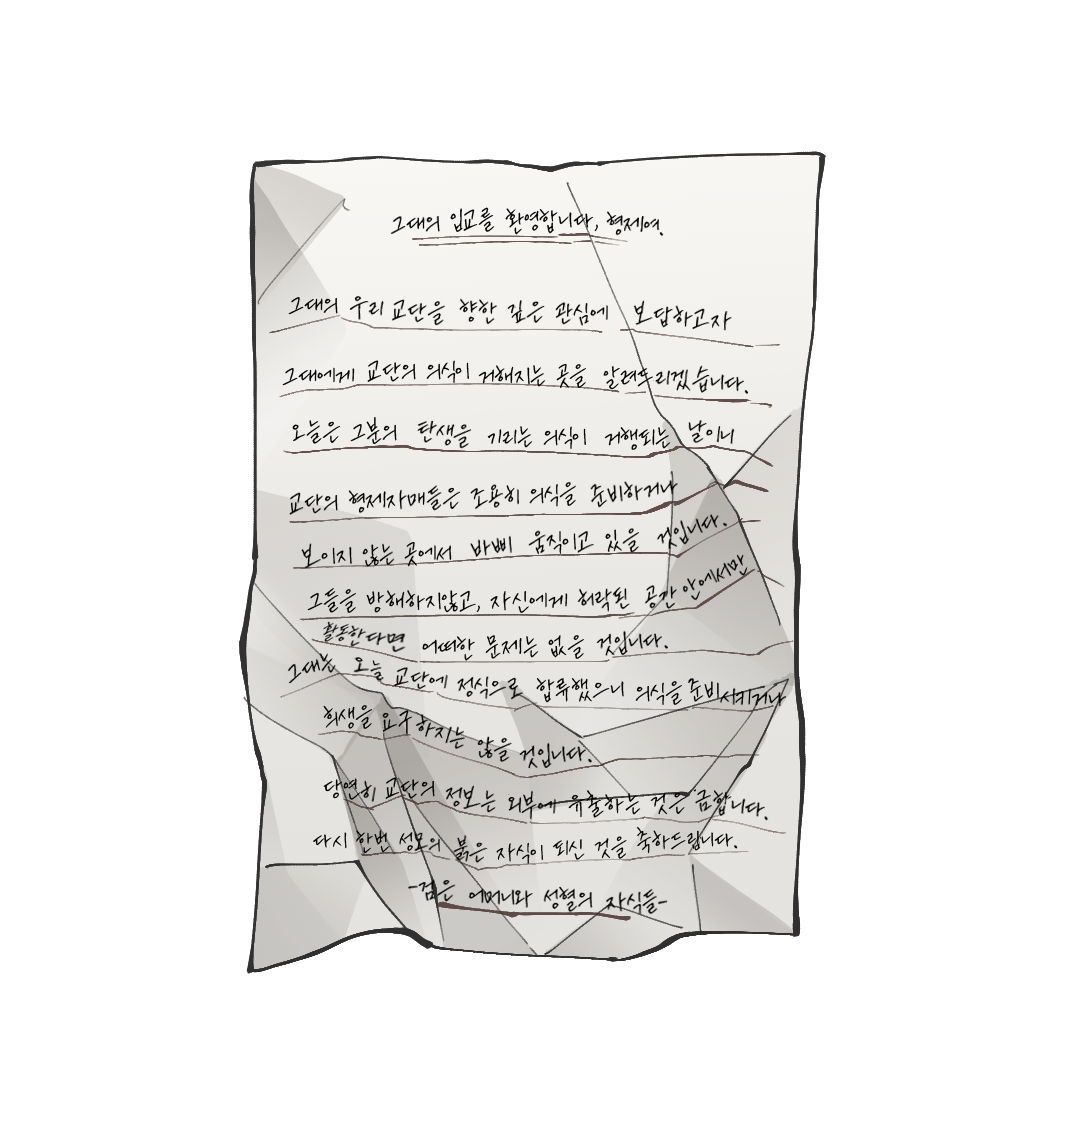 그대의 입교를 환영합니다, 형제여.
그대의 우리 교단을 향한 깊은 관심에 보답하고자
그대에게 교단의 의식이 거해지는 곳을 알려드리겠습니다.
오늘은 그분의 탄생을 기리는 의식이 거행되는 날이니
교단의 형제자매들은 조용히 의식을 준비하거나
보이지 않는 곳에서 바삐 움직이고 있을 것입니다.
그들을 방해하지않고, 자신에게 허락된 공간 안에서만
활동한다면 어떠한 문제는 없을 것입니다.
그대는 오늘 교단에 정식으로 합류했으니 의식을 준비시키거나
희생을 요구하지는 않을 것입니다.
당연히 교단의 정보는 외부에 유출하는 것은 금합니다.
다시 한번 성모의 붉은 자식이 되신 것을 축하드립니다.
-검은 어머니와 성혈의 자식들-